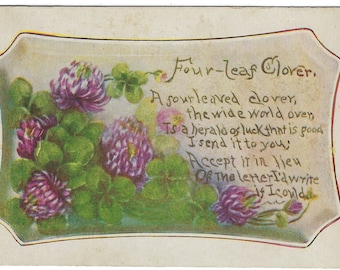 Four-Leaf Clover.
A fourleaved clover,
the wide world over,
Is a herald of luck that is good,
I send it to you;
Accept it in lieu
Of the letter I'd write
if I could.